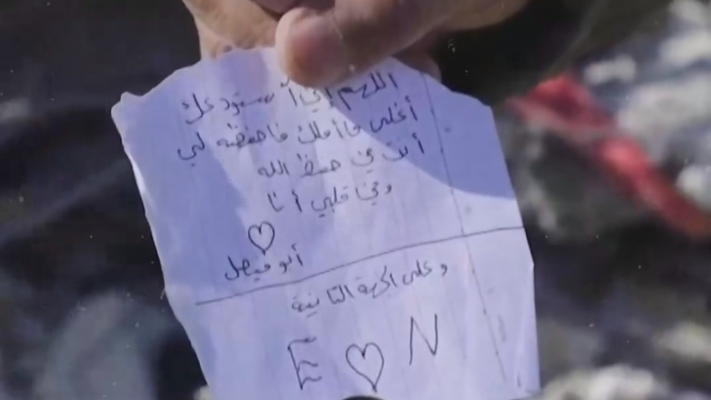 اللهم إني أستودعك
أغلى ما أملك فاحفظه لي
أنت في حفظ الله
وفي قلبي أنا
♡
أبو فيصل
وعلى الجهة الثانية
E ♡ N